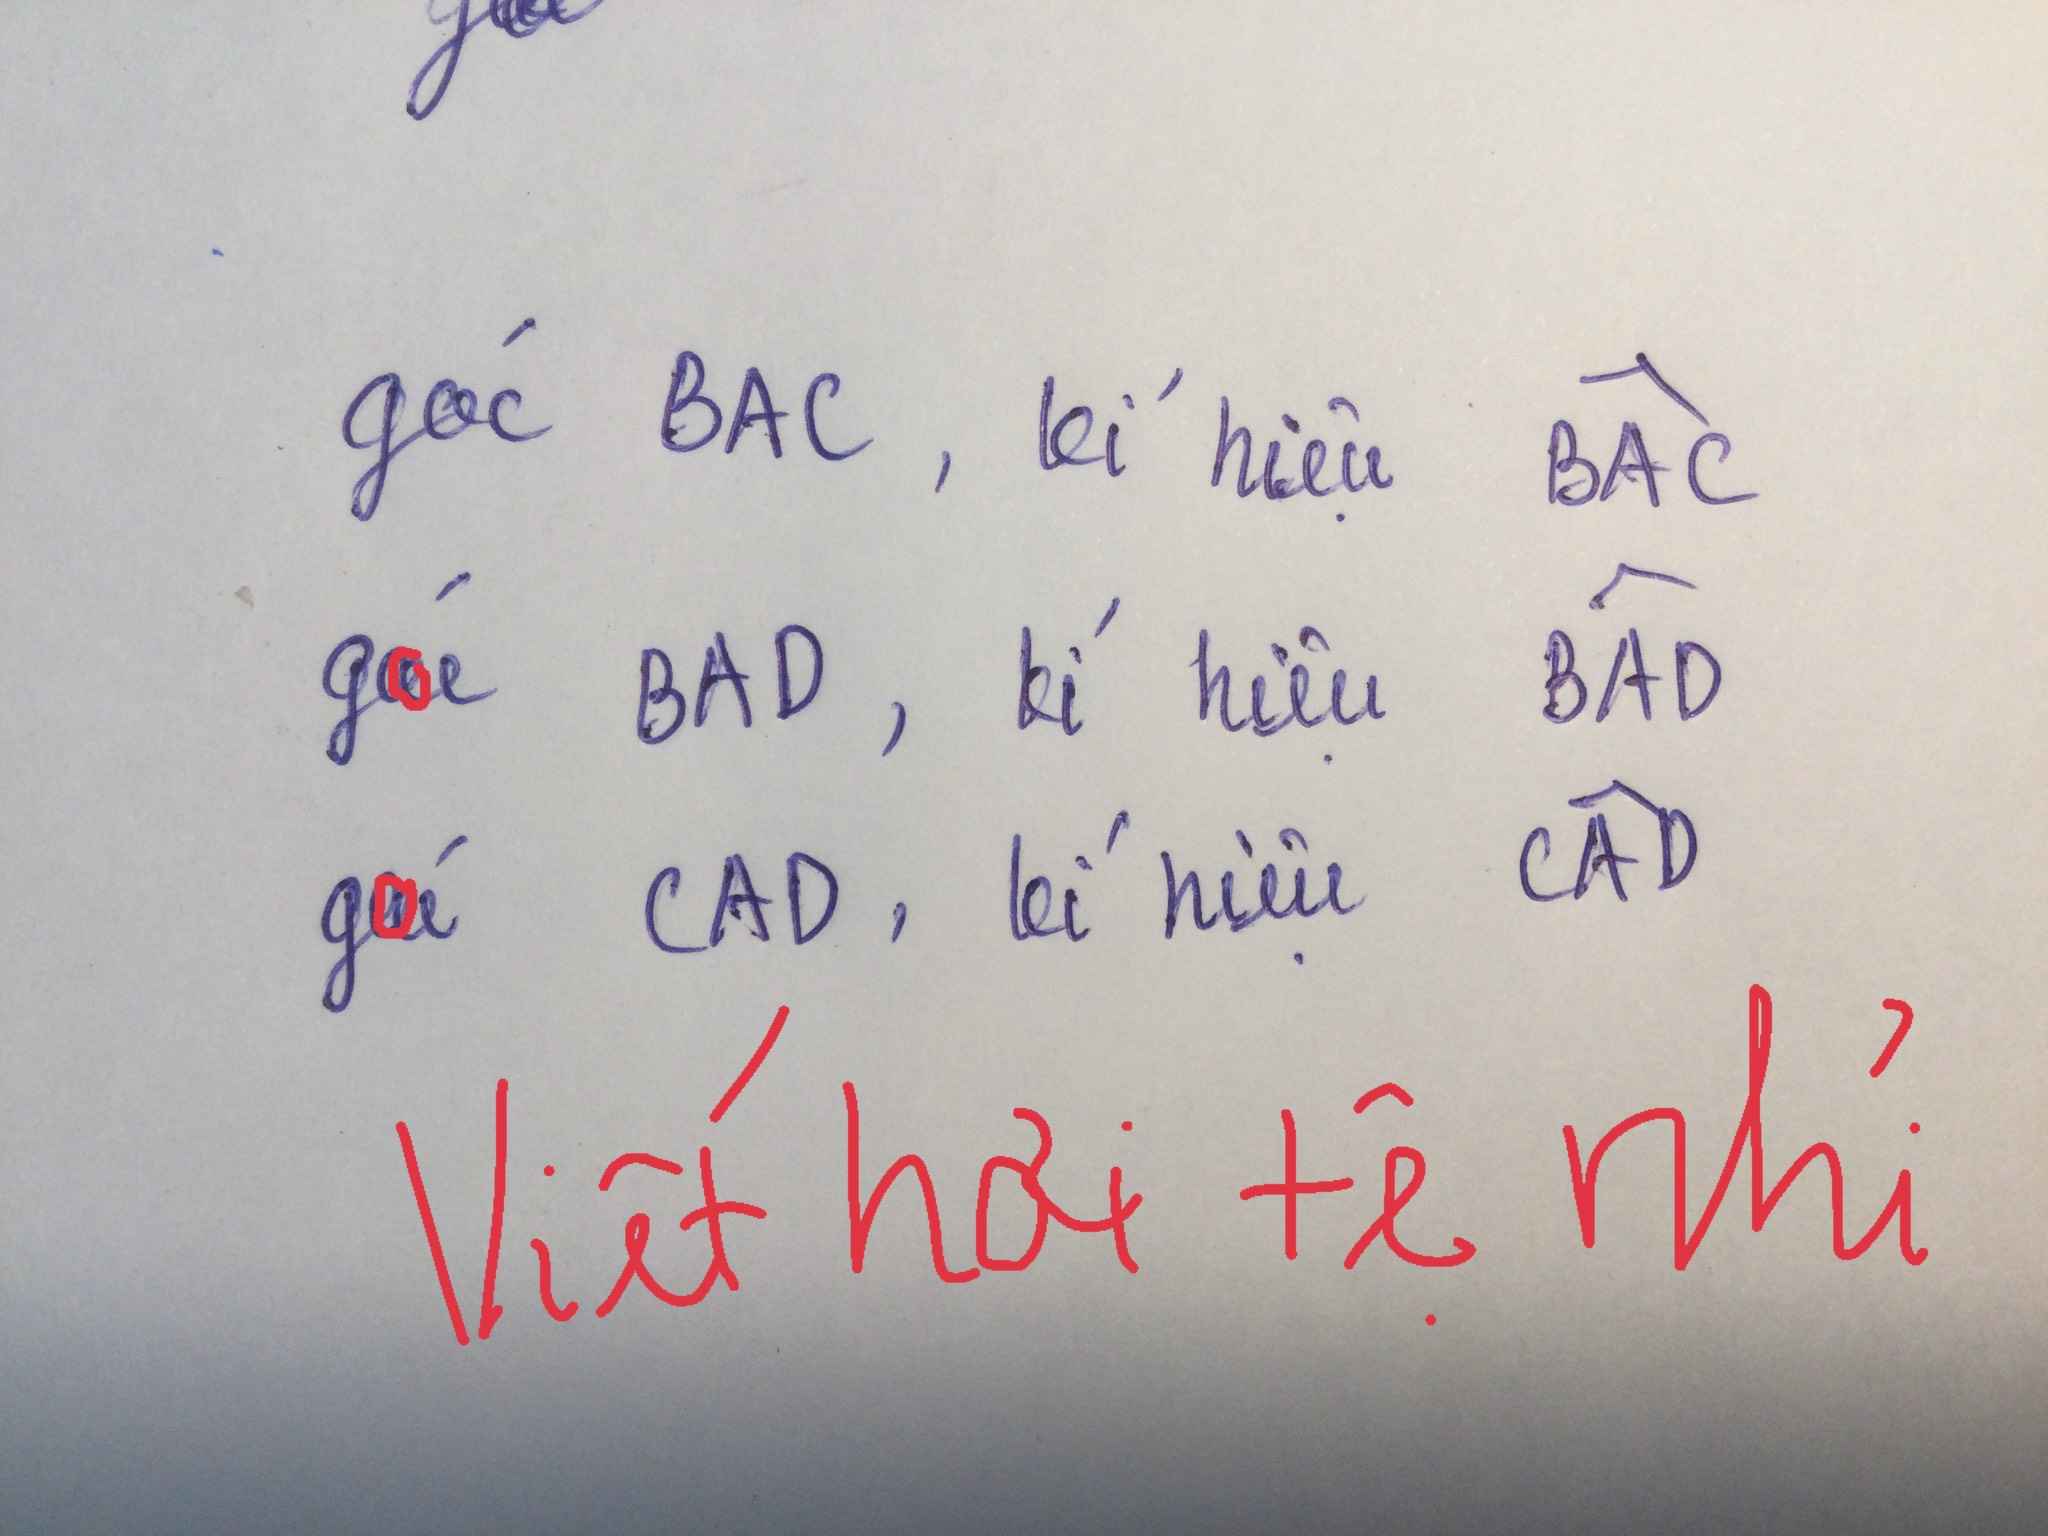 góc BAC, kí hiệu B̂AC
góc BAD, kí hiệu BÂD
góc CAD, kí hiệu CÂD
Viết hơi tệ nhỉ